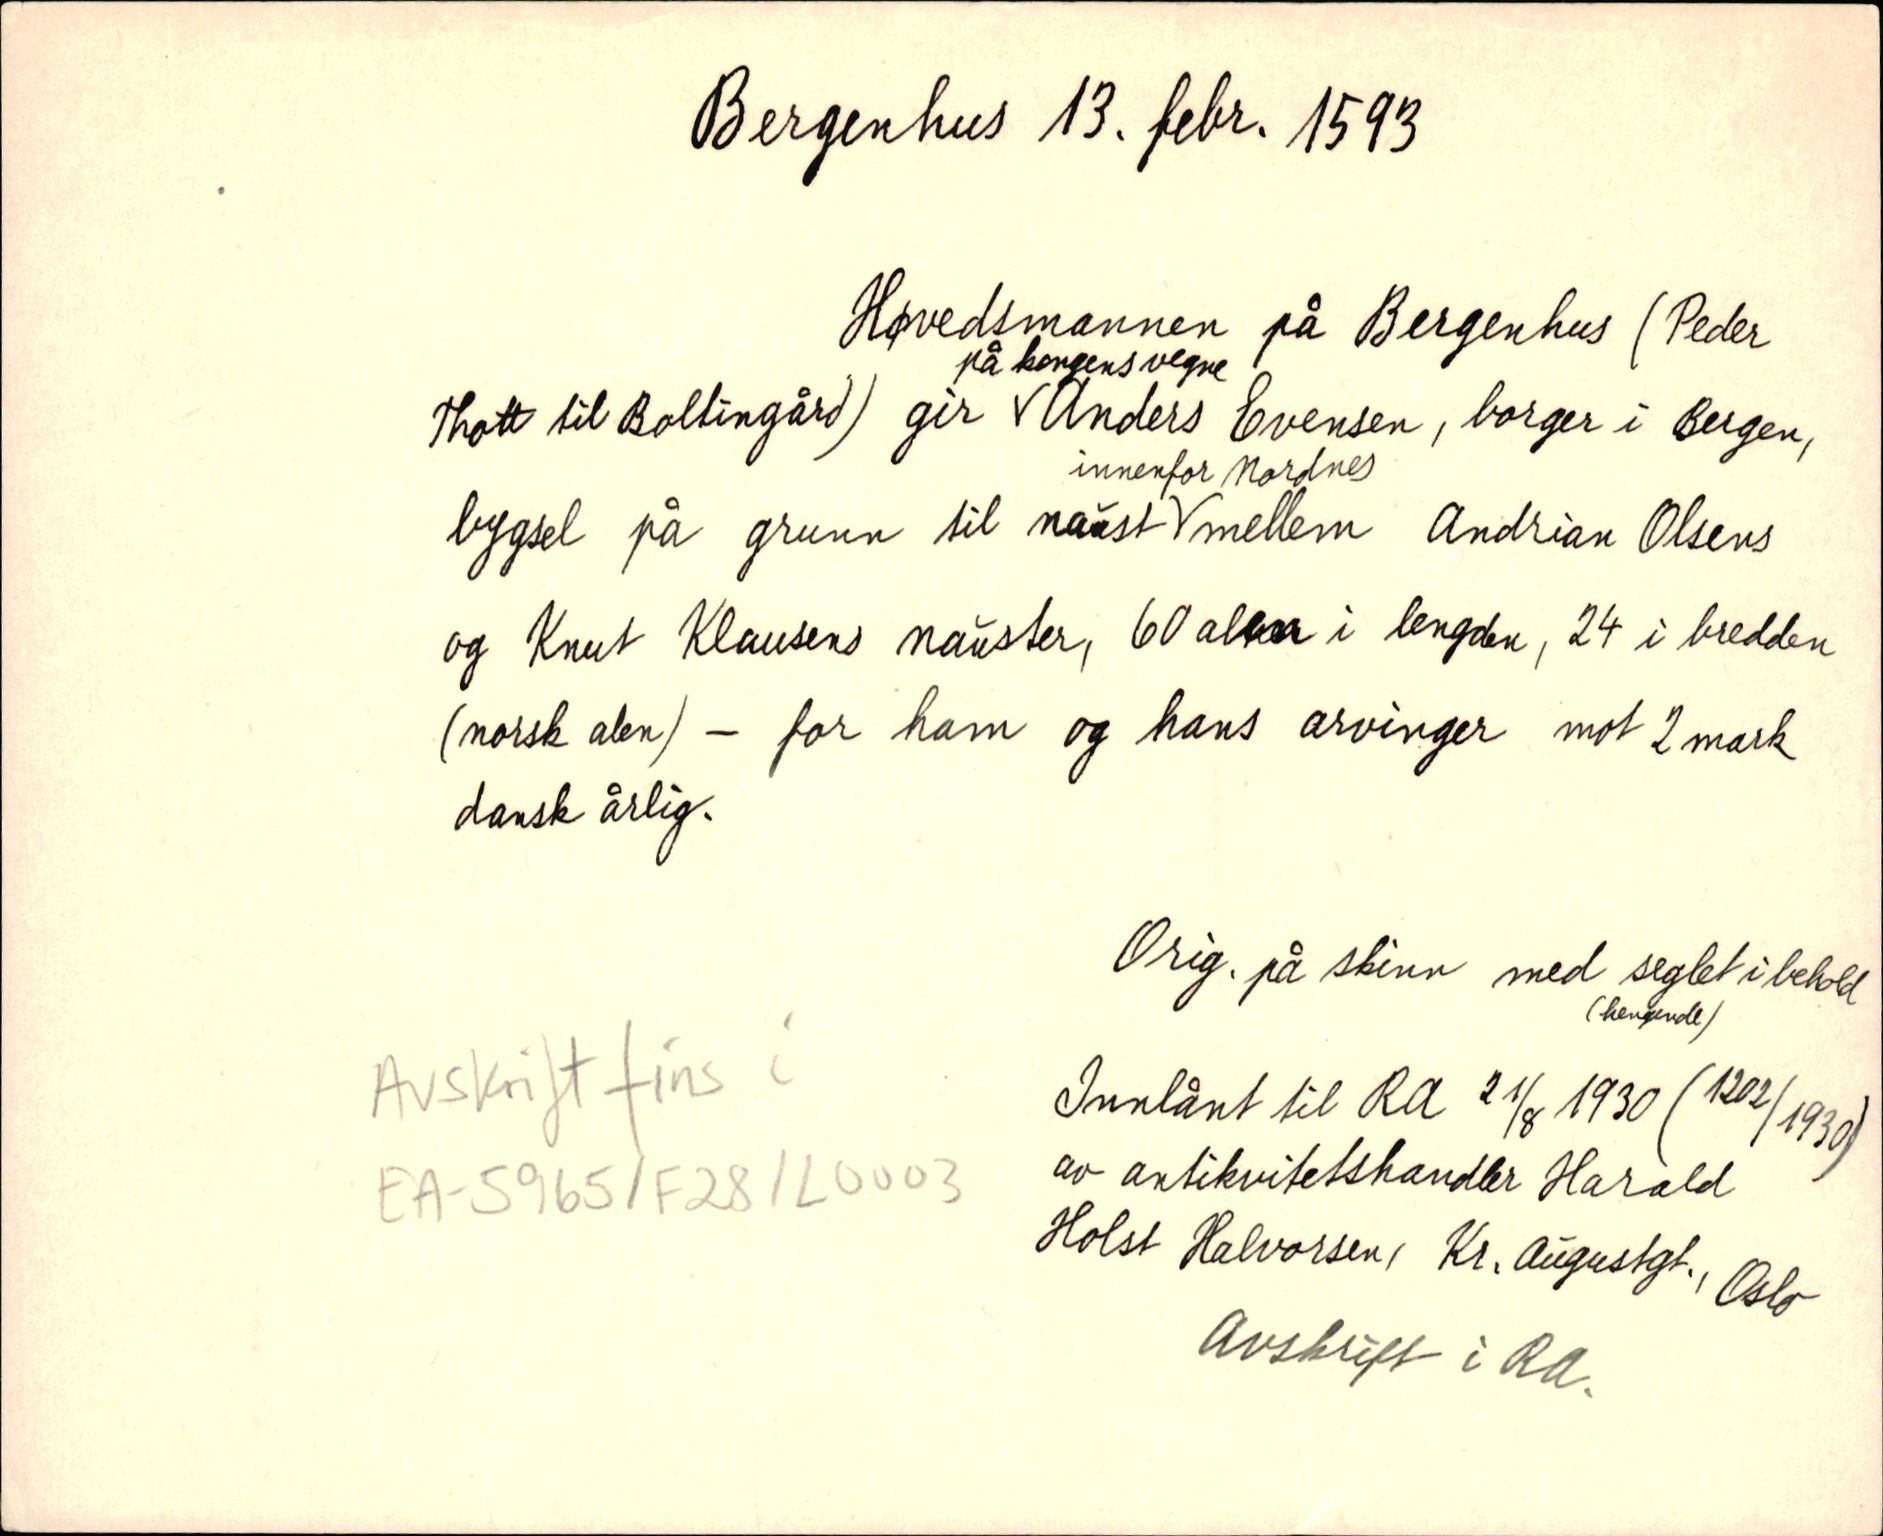 Bergenhus 13. febr. 1593
Høvedsmannen på Bergenhus (Peder
på kongens vegne
Thott til Boltingård) gir V Anders Evensen, borger i Bergen,
innenfor Nordnes
bygsel på grunn til naust V mellem Andrian Olsens
og Knut Klausens nauster, 60 alen i lengden, 24 i bredden
(norsk alen) - for ham og hans arvinger mot 2 mark
dansk årlig.
Orig. på skinn med seglet i behold
(hengende)
Innlånt til RA 21/8 1930 (1202/1930)
av antikvitetshandler Harald
Holst Halvorsen, Kr. Augustgt., Oslo
Avskrift i RA.
Avskrift fins i
EA-5965/F28/L0003